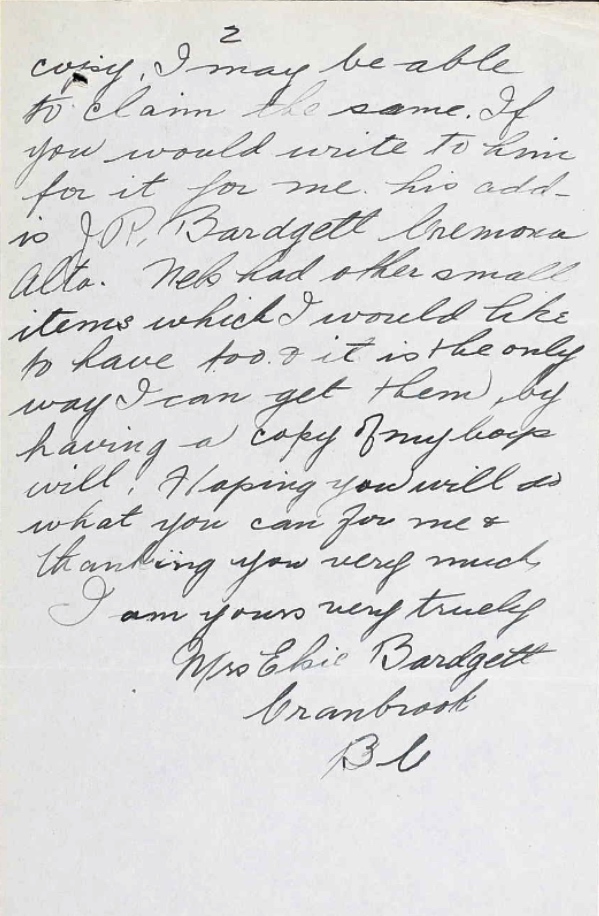 2
copy, I may be able
to claim the same. If
you would write to him
for it for me. his add-
is J.P. Bardgett Cremona
Alta. Nels had other small
items which I would like
to have too. & it is the only
way I can get them, by
having a copy of my boys
will. Hoping you will do
what you can for me &
thanking you very much
I am yours very truely
Mrs Elsie Bardgett
Cranbrook
B C